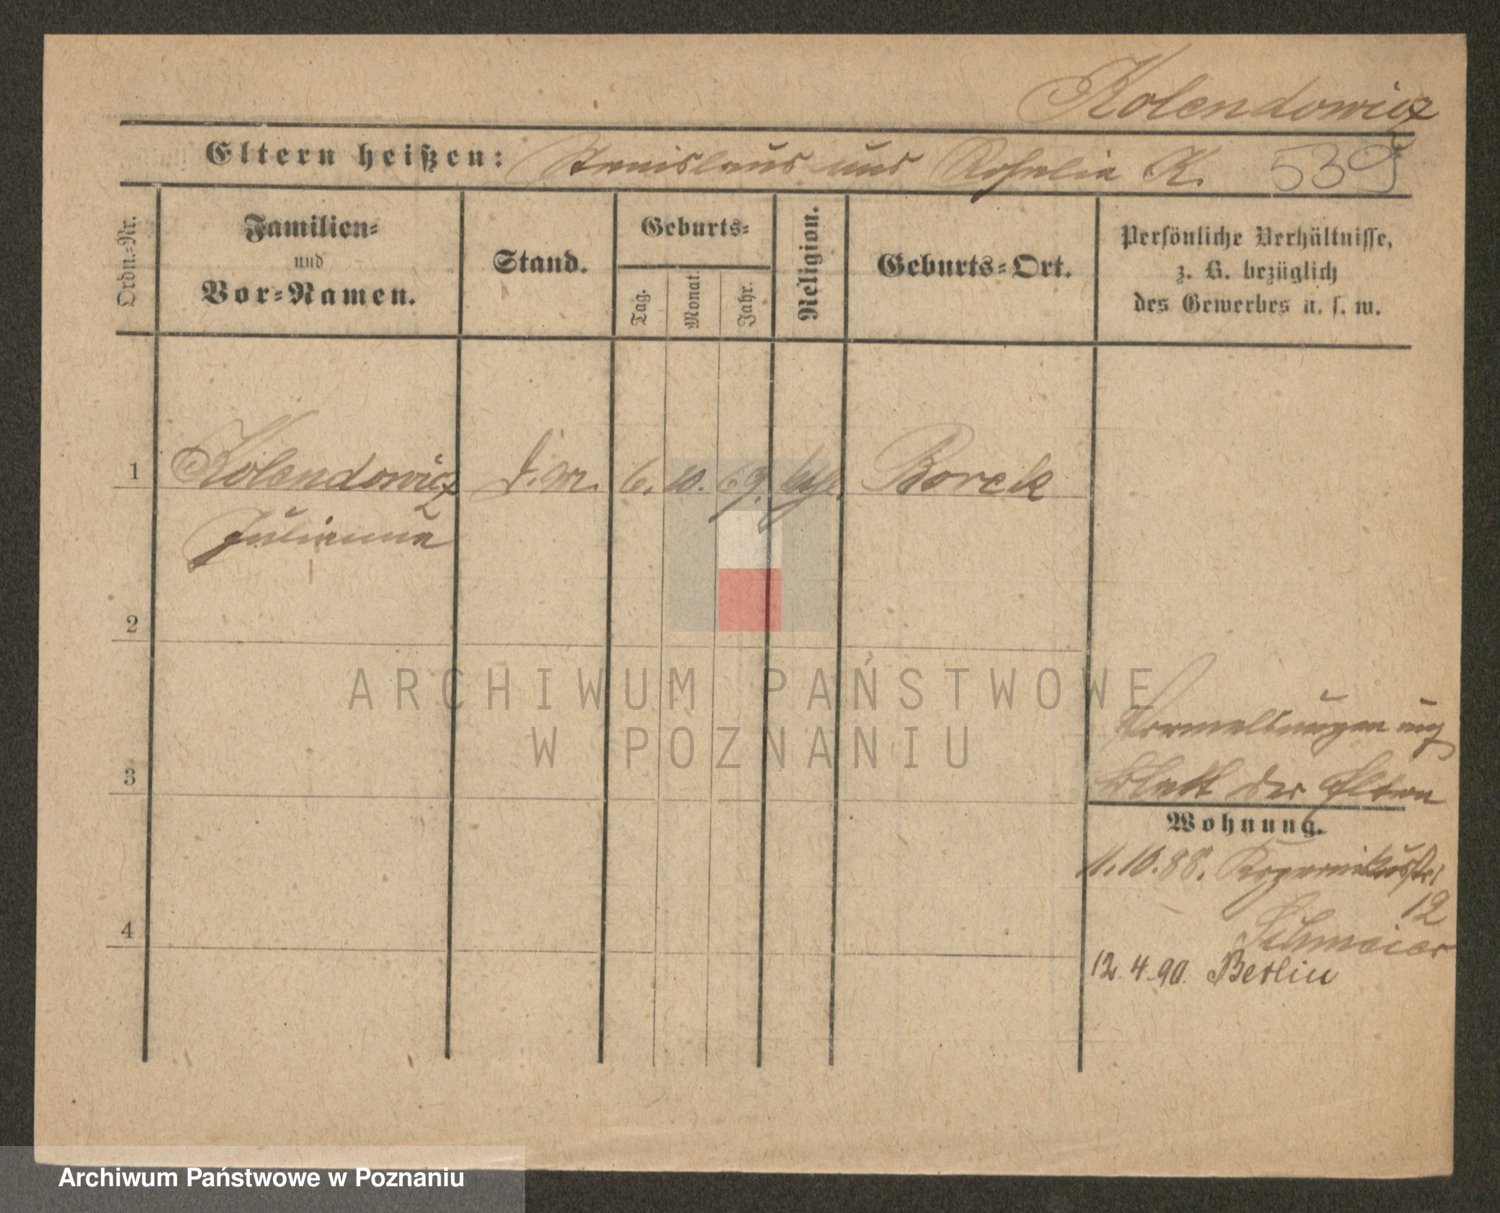 Kolendowicz
Eltern heißen: Stanislaus und Rosalia K. 539
Ordn.-Nr.
Familien-
und
Vor-Namen.
Stand.
Geburts-
Tag.
Monat.
Jahr.
Religion.
Geburts-Ort.
Persönliche Verhältnisse,
z. B. bezüglich
des Gewerbes u. s. w.
1 Kolendowicz 6. 10. 69. kath. Borek
Julianna
2
ARCHIWUM PAŃSTWOWE
W POZNANIU
3
blatt der Eltern
Wohnung.
1.10.88. Kopernikusstr.
12
4
12.4.90. Berlin
Archiwum Państwowe w Poznaniu